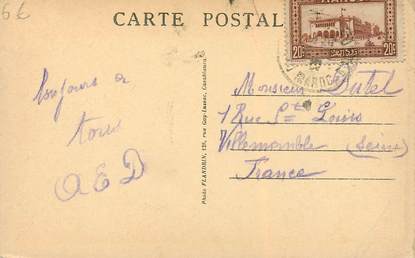 6€
CARTE POSTAL
MAROC
20c 20c
MAROC
toujours a
tous
A E D
Photo FLANDRIN, 128, rue Gay-Lussac, Casablanca
Monsieur Dutel
1 Rue St Louis
Villemomble (Seine)
France